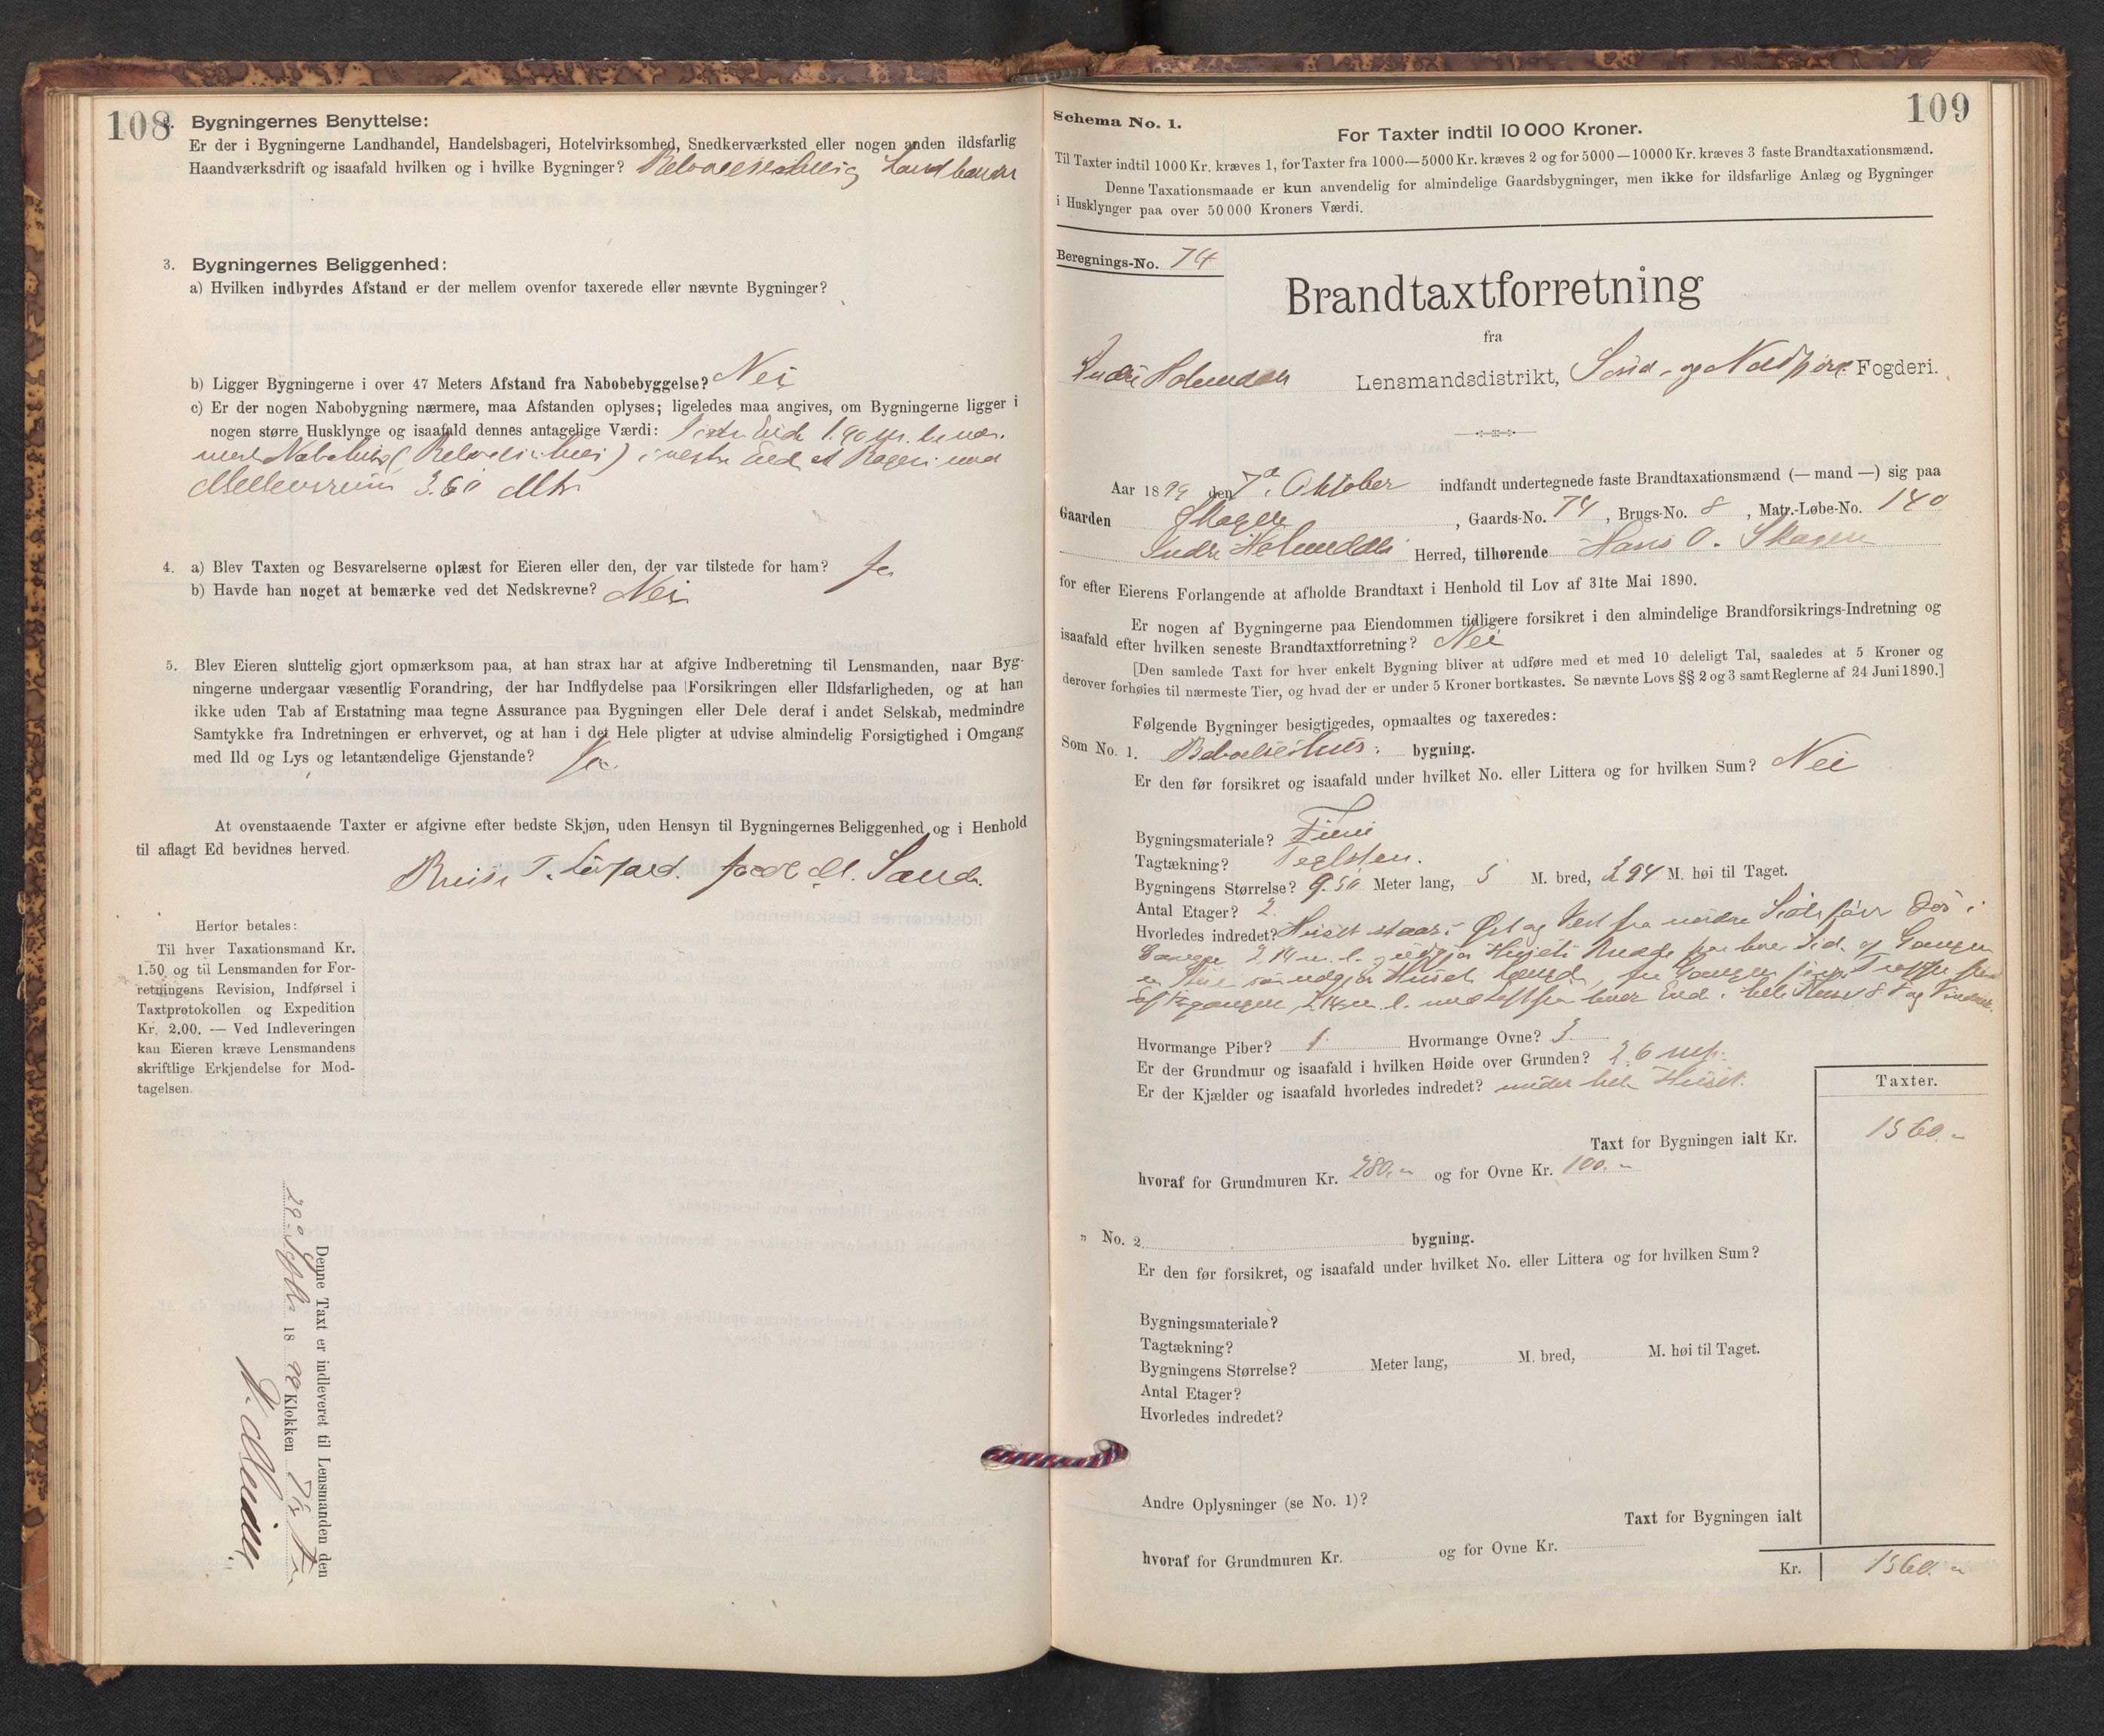 108
2. Bygningernes Benyttelse:
Er der i Bygningerne Landhandel, Handelsbageri, Hotelvirksomhed, Snedkerværksted eller nogen anden ildsfarlig
Haandværksdrift og isaafald hvilken og i hvilke Bygninger?
3. Bygningernes Beliggenhed:
a) Hvilken indbyrdes Afstand er der mellem ovenfor taxerede eller nævnte Bygninger?
b) Ligger Bygningerne i over 47 Meters Afstand fra Nabobebyggelse? Nei
c) Er der nogen Nabobygning nærmere, maa Afstanden oplyses; ligeledes maa angives, om Bygningerne ligger i
nogen større Husklynge og isaafald dennes antagelige Værdi: Ende 1.90 m.
med Nabohus ( ) i vestre Ende et Bageri med
Mellemrum 3.60 Mtr
4. a) Blev Taxten og Besvarelserne oplæst for Eieren eller den, der var tilstede for ham? Ja
b) Havde han noget at bemærke ved det Nedskrevne? Nei
5. Blev Eieren sluttelig gjort opmærksom paa, at han strax har at afgive Indberetning til Lensmanden, naar Byg-
ningerne undergaar væsentlig Forandring, der har Indflydelse paa Forsikringen eller Ildsfarligheden, og at han
ikke uden Tab af Erstatning maa tegne Assurance paa Bygningen eller Dele deraf i andet Selskab, medmindre
Samtykke fra Indretningen er erhvervet, og at han i det Hele pligter at udvise almindelig Forsigtighed i Omgang
med Ild og Lys og letantændelige Gjenstande? Ja
At ovenstaaende Taxter er afgivne efter bedste Skjøn, uden Hensyn til Bygningernes Beliggenhed og i Henhold
til aflagt Ed bevidnes herved.
M. Sande
Herfor betales:
Til hver Taxationsmand Kr.
1.50 og til Lensmanden for For-
retningens Revision, Indførsel i
Taxtprotokollen og Expedition
Kr. 2.00. — Ved Indleveringen
kan Eieren kræve Lensmandens
skriftlige Erkjendelse for Mod-
tagelsen.
Denne Taxt er indleveret til Lensmanden den
18 Klokken
109
Schema No. 1.
For Taxter indtil 10 000 Kroner.
Til Taxter indtil 1000 Kr. kræves 1, for Taxter fra 1000—5000 Kr. kræves 2 og for 5000—10000 Kr. kræves 3 faste Brandtaxationsmænd.
Denne Taxationsmaade er kun anvendelig for almindelige Gaardsbygninger, men ikke for ildsfarlige Anlæg og Bygninger
i Husklynger paa over 50 000 Kroners Værdi.
Beregnings-No. 74
Brandtaxtforretning
fra
Indre Holmedals Lensmandsdistrikt, Sønd- og Nordfjord Fogderi.
Aar 1899 den 7de Oktober indfandt undertegnede faste Brandtaxationsmænd (— mand —) sig paa
Gaarden Skagen, Gaards-No. 74, Brugs-No. 8, Matr.-Løbe-No. 140
Indre Holmedals Herred, tilhørende Hans O. Skagen
for efter Eierens Forlangende at afholde Brandtaxt i Henhold til Lov af 31te Mai 1890.
Er nogen af Bygningerne paa Eiendommen tidligere forsikret i den almindelige Brandforsikrings-Indretning og
isaafald efter hvilken seneste Brandtaxtforretning? Nei
[Den samlede Taxt for hver enkelt Bygning bliver at udføre med et med 10 deleligt Tal, saaledes at 5 Kroner og
derover forhøies til nærmeste Tier, og hvad der er under 5 Kroner bortkastes. Se nævnte Lovs §§ 2 og 3 samt Reglerne af 24 Juni 1890.]
Følgende Bygninger besigtigedes, opmaaltes og taxeredes:
Som No. 1. Beboelseshus bygning.
Er den før forsikret og isaafald under hvilket No. eller Littera og for hvilken Sum? Nei
Bygningsmateriale?
Tagtækning? Teglsten.
Bygningens Størrelse? 9.50 Meter lang, 5 M. bred, M. høi til Taget.
Antal Etager? 2
Hvorledes indredet? Huset staar i Øst og Vest fra
Hvormange Piber? 1 Hvormange Ovne? 3
Er der Grundmur og isaafald i hvilken Høide over Grunden?
Er der Kjælder og isaafald hvorledes indredet? under hele Huset.
Taxter.
Taxt for Bygningen ialt Kr. 1560.-
hvoraf for Grundmuren Kr. 280.- og for Ovne Kr. 100.-
" No. 2 bygning.
Er den før forsikret, og isaafald under hvilket No. eller Littera og for hvilken Sum?
Bygningsmateriale?
Tagtækning?
Bygningens Størrelse? Meter lang, M. bred, M. høi til Taget.
Antal Etager?
Hvorledes indredet?
Andre Oplysninger (se No. 1)?
Taxt for Bygningen ialt
hvoraf for Grundmuren Kr. og for Ovne Kr.
Kr. 1560.-